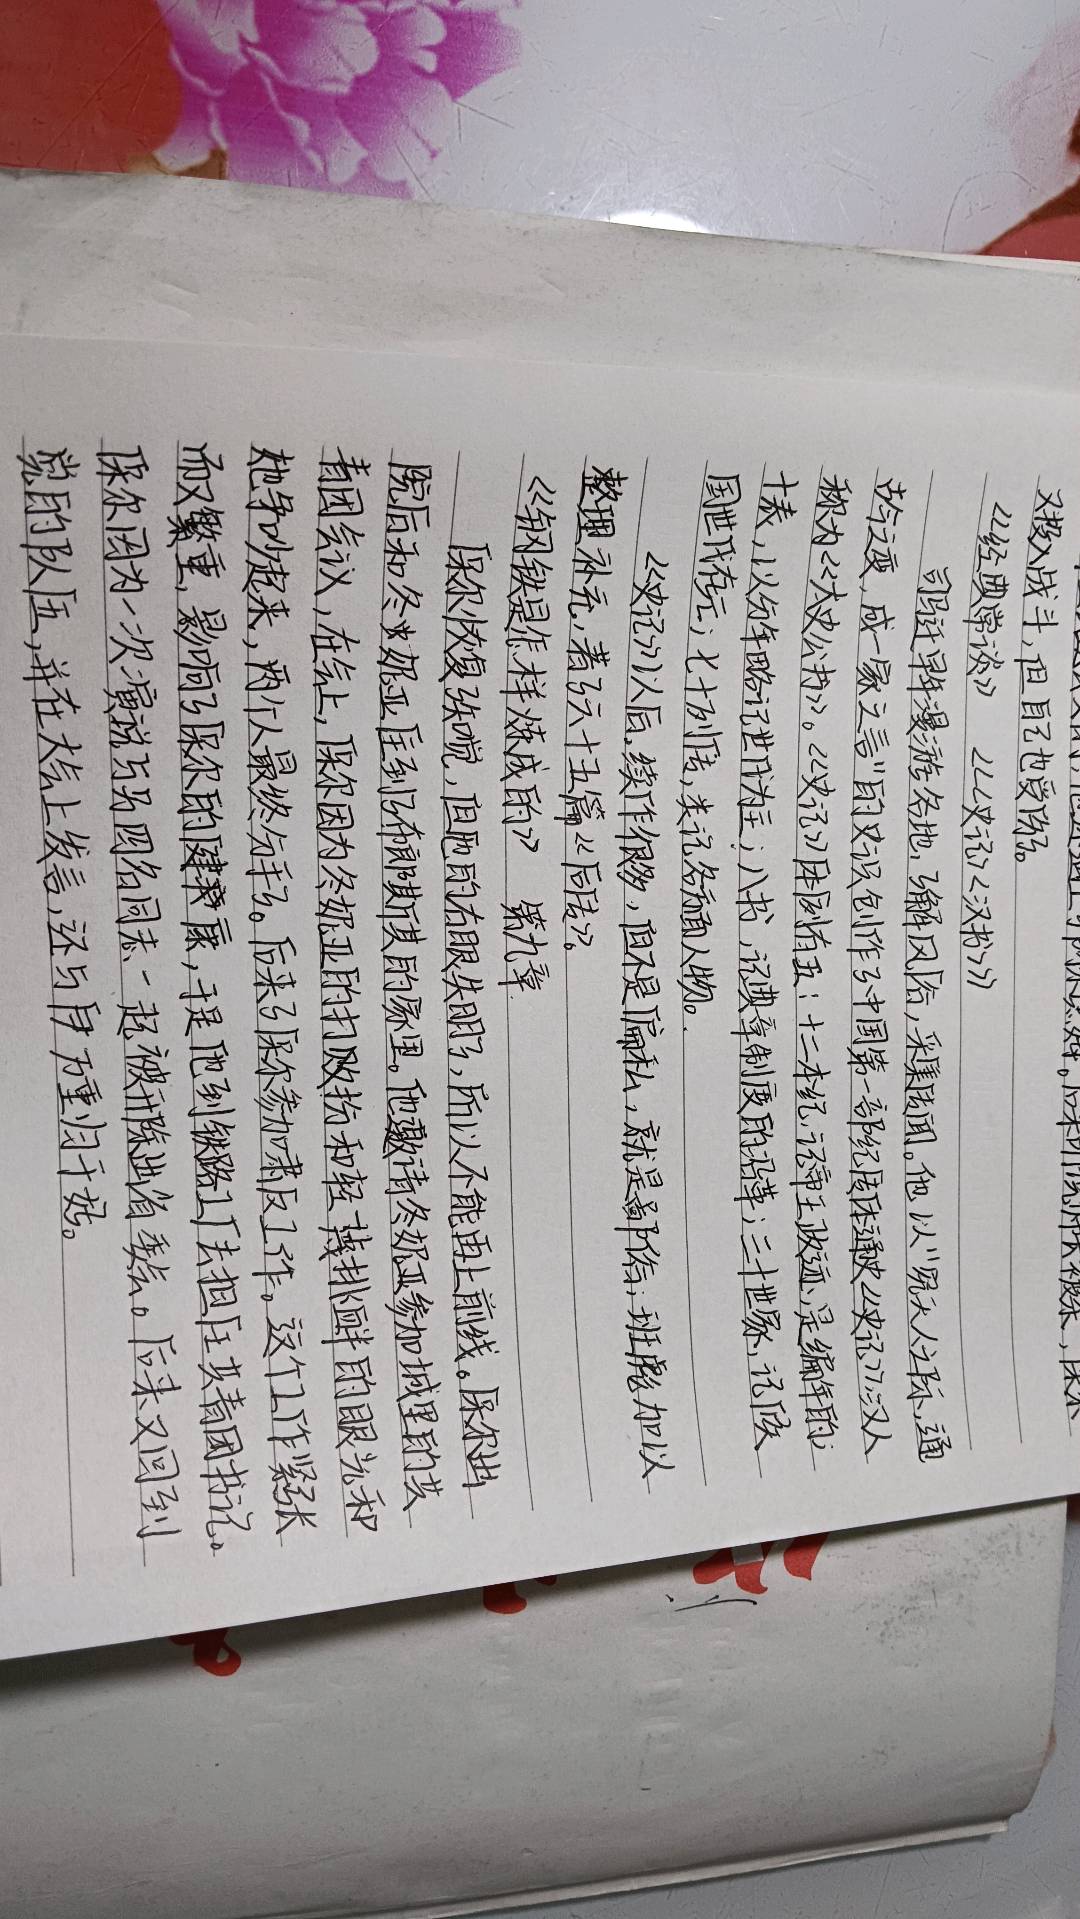 又投入战斗，但自己也受伤。
《经典常谈》 《《史记》《汉书》》
司马迁早年漫游各地，了解风俗，采集传闻。他以"究天人之际，通
古今之变，成一家之言"的史识创作了中国第一部纪传体通史《史记》汉人
称为《太史公书》。《史记》体例有五：十二本纪，记帝王政迹，是编年的；
十表，以分年略记世代为主；八书，记典章制度的沿革；三十世家，记侯
国世代存亡；七十列传，类记各方面人物。
《史记》以后，续作很多，但不是偏私，就是鄙俗；班彪加以
整理补充，著了六十五篇《后传》。
《钢铁是怎样炼成的》 第九章
保尔恢复知觉，但他的右眼失明了，所以不能再上前线。保尔出
院后和冬妮亚住到了布朗斯基的家里。他邀请冬妮亚参加城里的共
青团会议，在会上，保尔因为冬妮亚的打吸扮和轻薄挑衅的眼光和
她争吵起来，两个人最终分手了。后来了保尔参加肃反工作。这个工作紧张
而又繁重，影响了保尔的健康，于是他到铁路工厂去担任共青团书记。
保尔因为一次演说与另四名同志一起被开除出省委会。后来又回到
党的队伍，并在大会上发言，还与自己方重归于好。